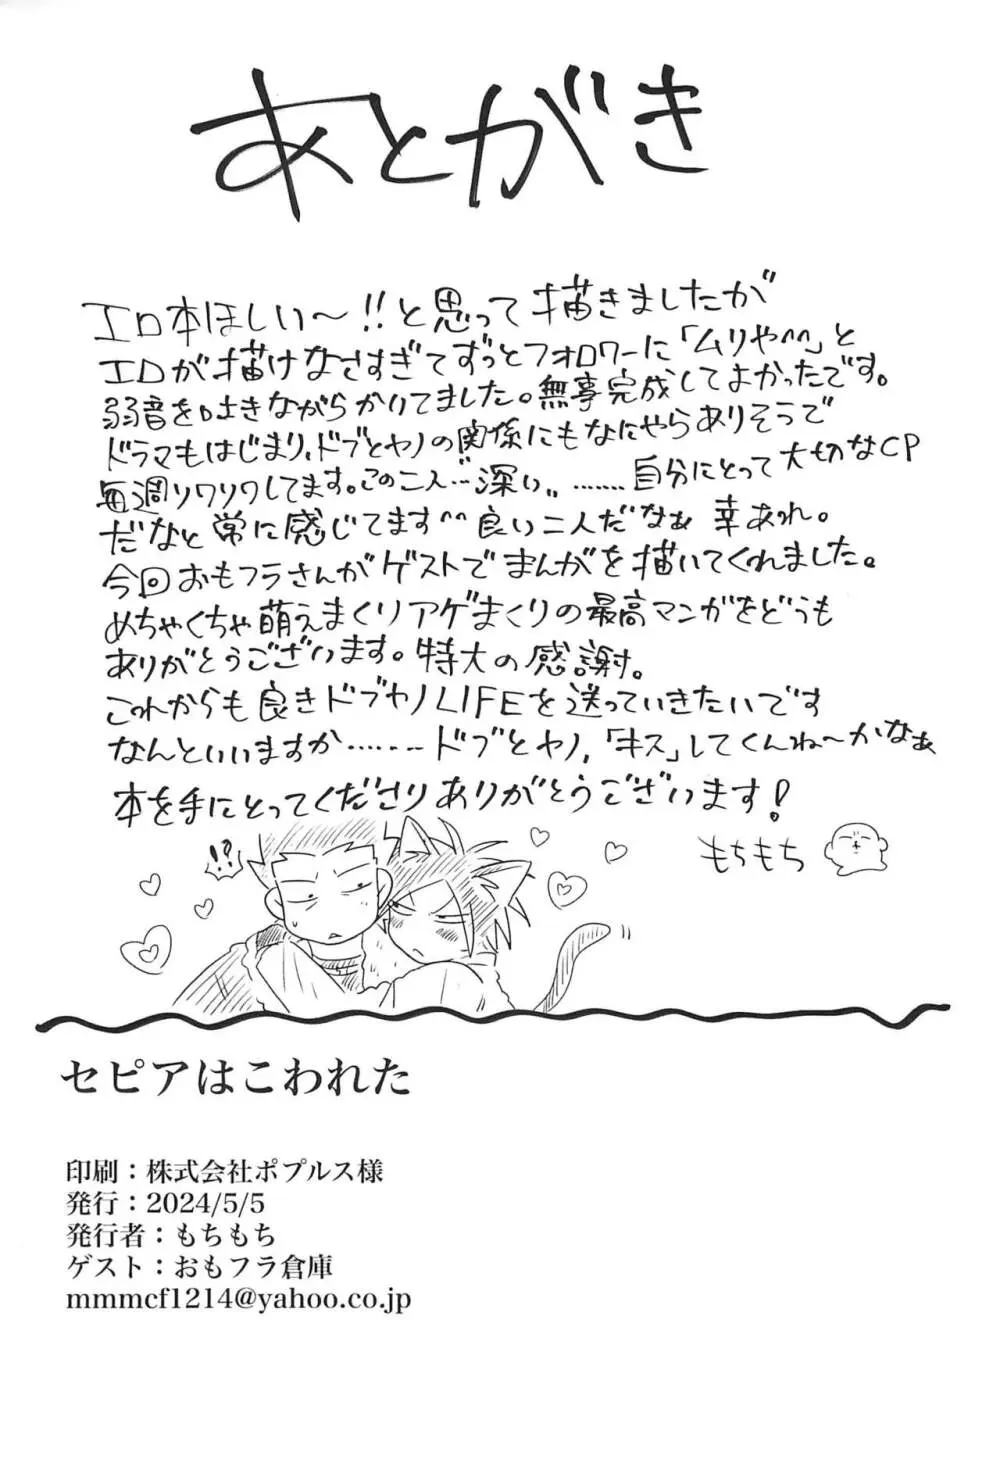 あとがき
エロ本ほしい～!!と思って描きましたが
エロが描けなさすぎてずっとフォロワーに「ムリや^^」と
弱音を吐きながらかいてました。無事完成してよかったです。
ドラマもはじまり、ドブとヤノの関係にもなにやらありそうで
毎週ソワソワしてます。この二人…深い………自分にとって大切なCP
だなと常に感じてます^^良い二人だなぁ 幸あれ。
今回おもフラさんがゲストでまんがを描いてくれました。
めちゃくちゃ萌えまくりアゲまくりの最高マンガをどうも
ありがとうございます。特大の感謝。
これからも良きドブヤノLIFEを送っていきたいです
なんといいますか……… ドブとヤノ,「キス」してくんね～かなぁ
本を手にとってくださりありがとうございます!
もちもち
!?
セピアはこわれた
印刷：株式会社ポプルス様
発行：2024/5/5
発行者：もちもち
ゲスト：おもフラ倉庫
mmmcf1214@yahoo.co.jp